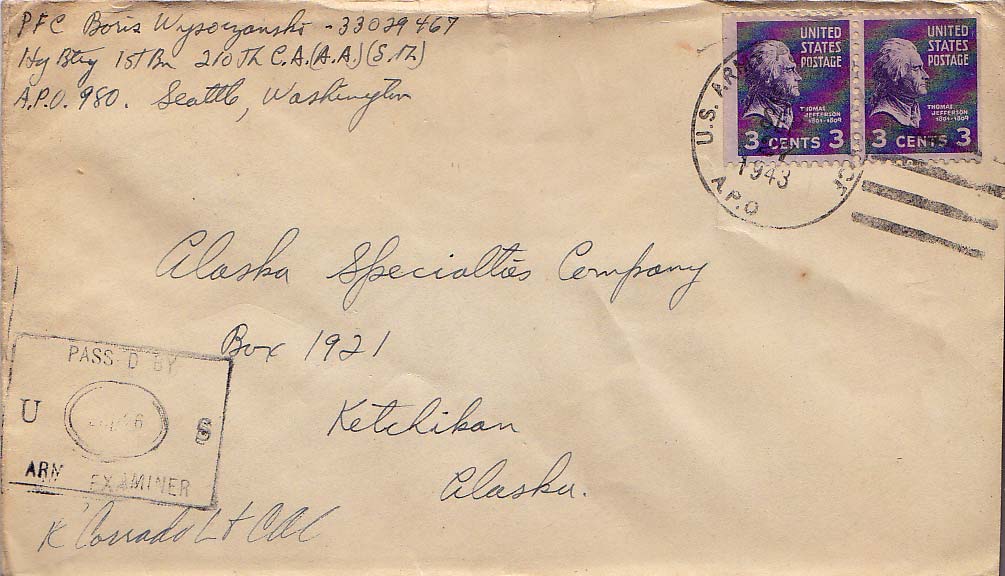 PFC Boris Wysoczanski - 33029467
Hq Btry 1st Bn 210th C.A.(A.A.)(S.M.)
A.P.O. 980. Seattle, Washington
UNITED STATES POSTAGE
THOMAS JEFFERSON
1801-1809
3 CENTS 3
UNITED STATES POSTAGE
THOMAS JEFFERSON
1801-1809
3 CENTS 3
U.S. ARMY
1943
A.P.O
Alaska Specialties Company
Box 1921
Ketchikan
Alaska.
PASS D BY
U S
ARM EXAMINER
Lt CAC